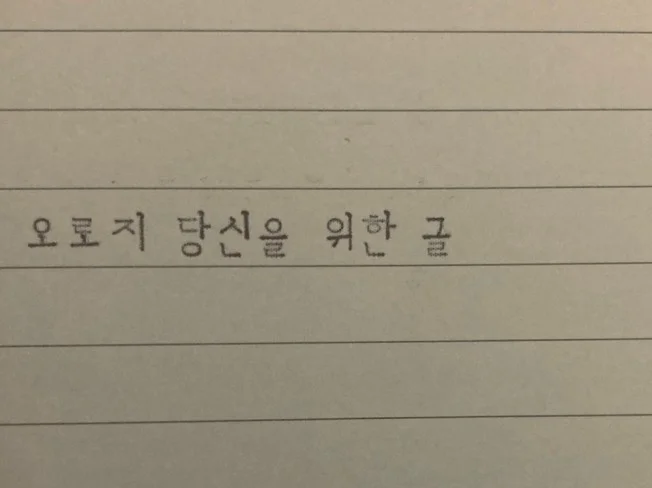 오로지 당신을 위한 글